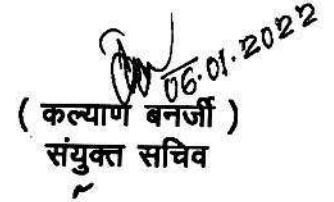 06.01.2022
( कल्याण बनर्जी )
संयुक्त सचिव